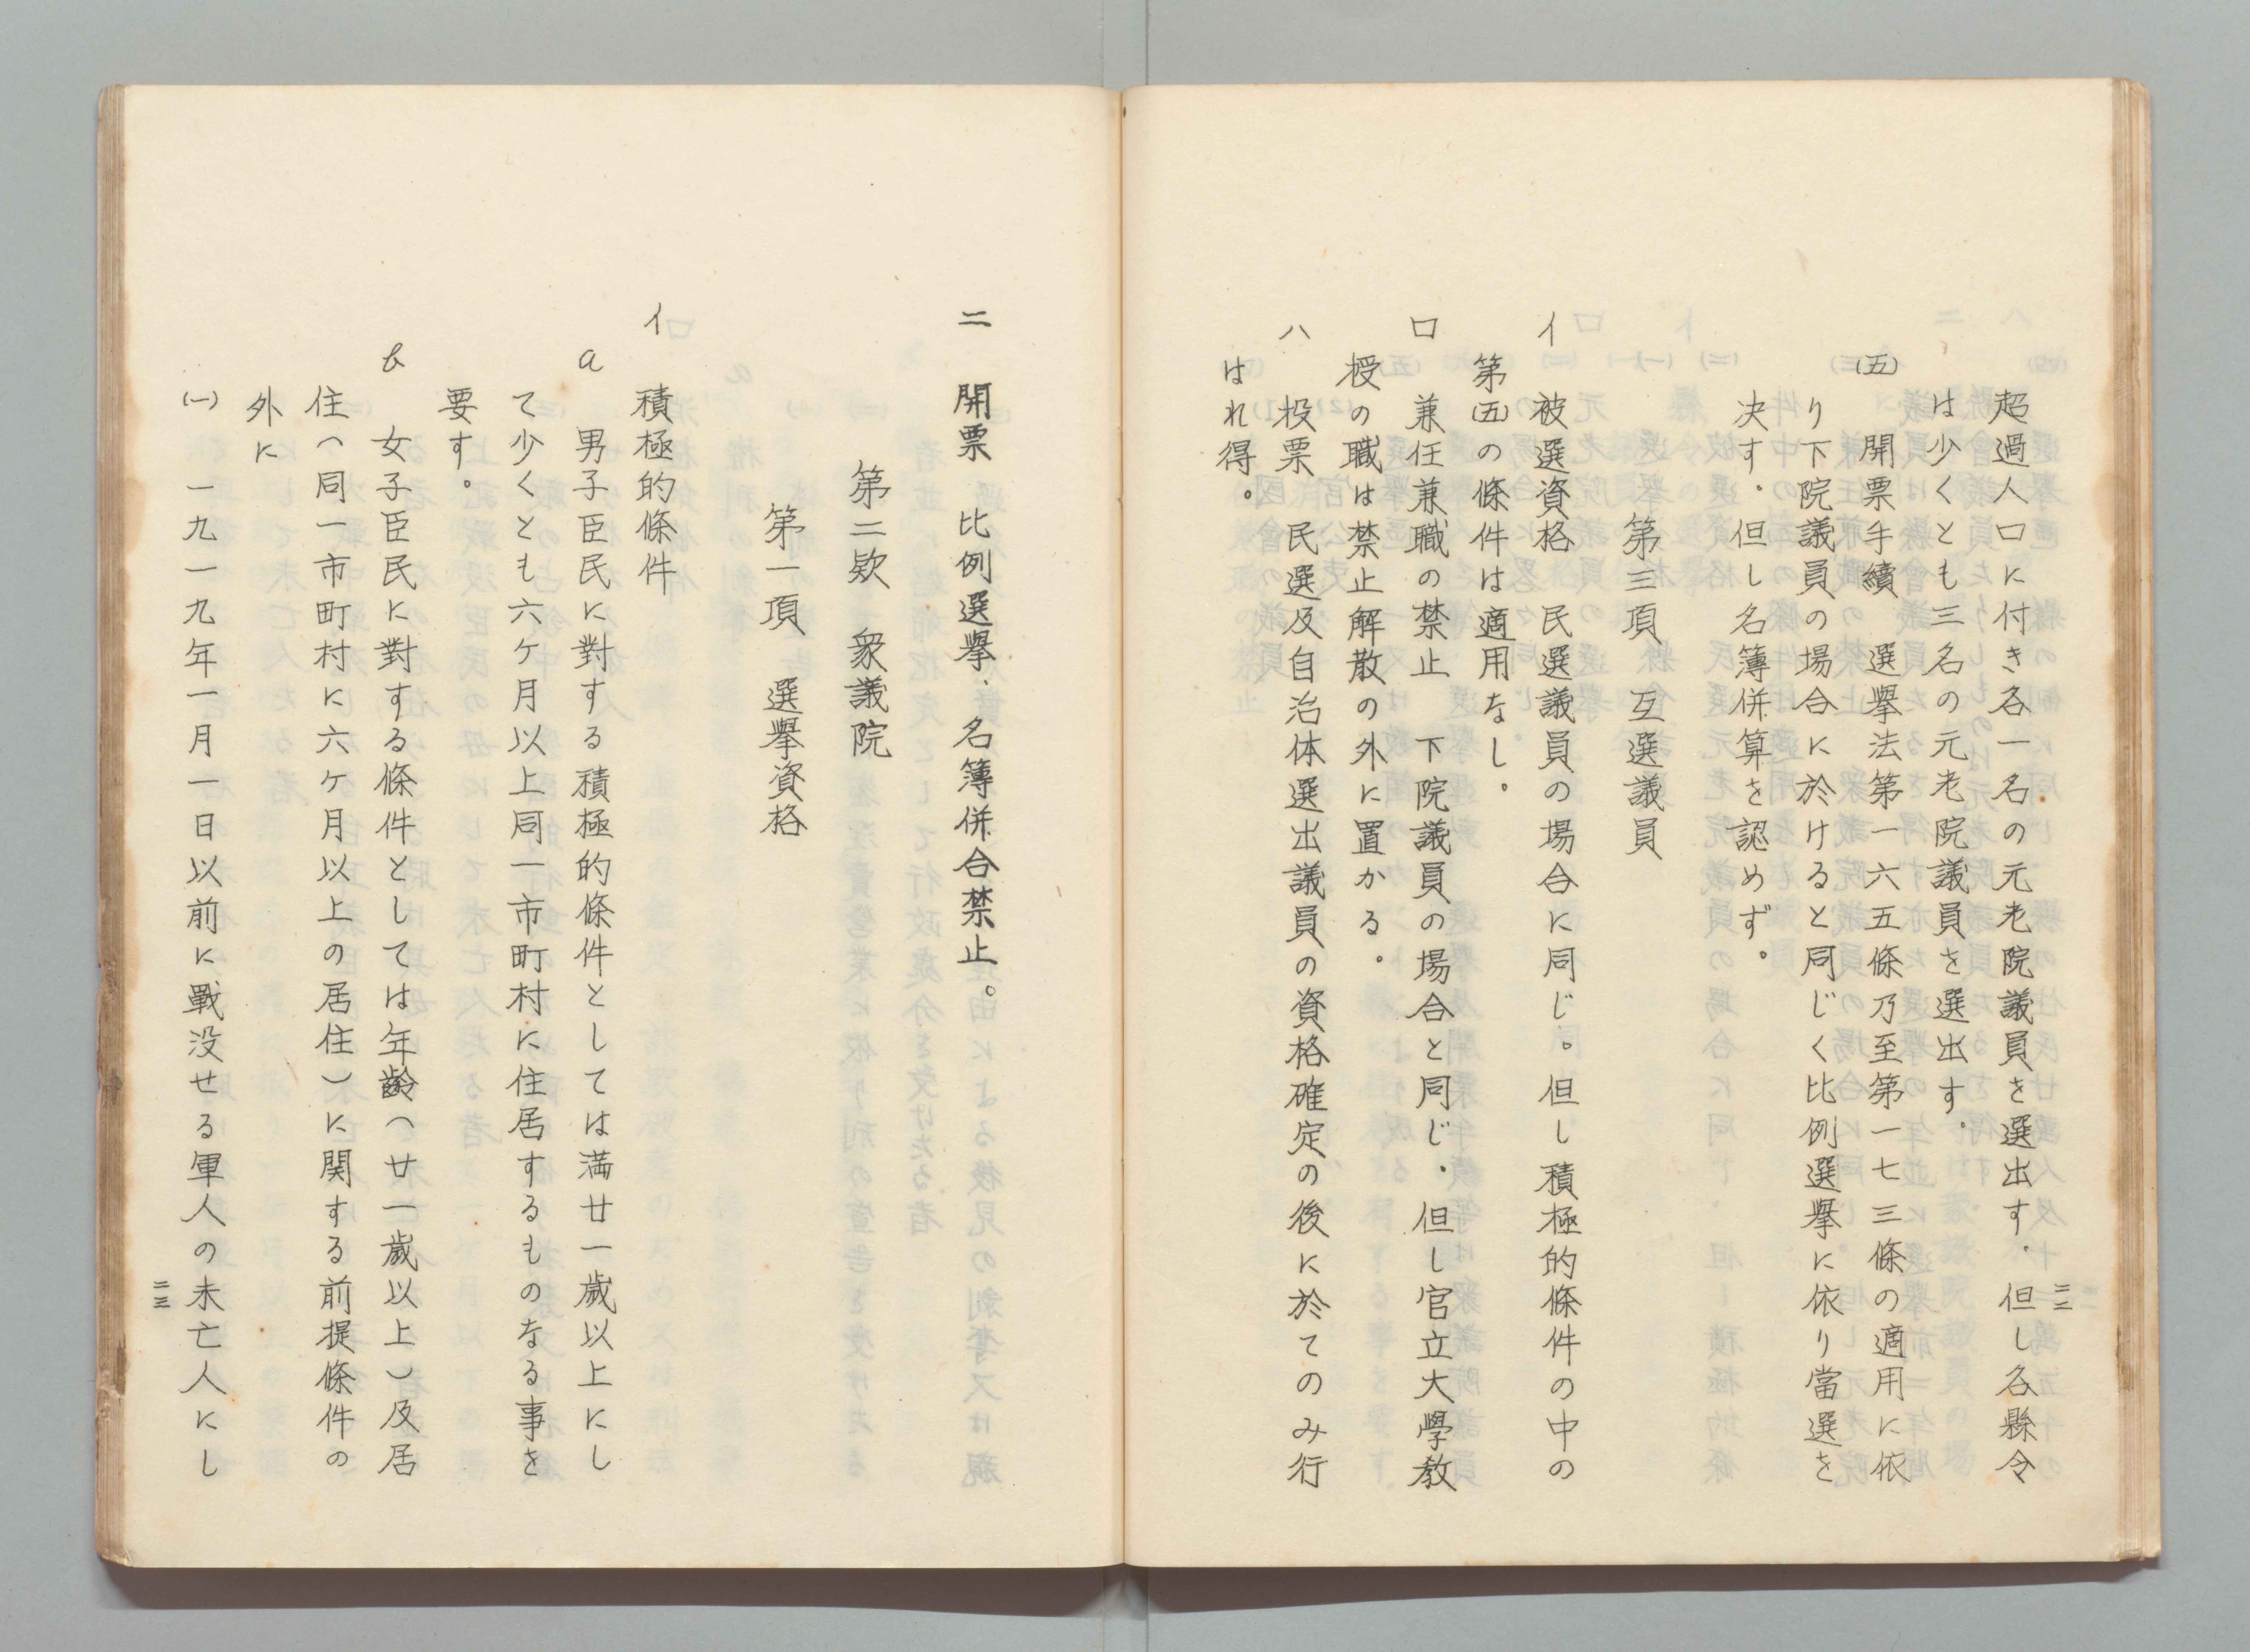 超過人口に付き各一名の元老院議員を選出す．但し各縣令
は少くとも三名の元老院議員を選出す．
㈤　開票手續　選擧法第一六五條乃至第一七三條の適用に依
り下院議員の場合に於けると同じく比例選擧に依り當選を
决す．但し名簿併算を認めず。
第三項　互選議員
イ　被選資格　民選議員の場合に同じ。但し積極的條件の中の
第㈤の條件は適用なし。
ロ　兼任兼職の禁止　下院議員の場合と同じ．但し官立大學教
授の職は禁止解散の外に置かる。
ハ　投票　民選及自治体選出議員の資格確定の後に於てのみ行
はれ得。
二二
ニ　開票　比例選擧．名簿併合禁止。
第二欵　衆議院
第一項　選擧資格
イ　積極的條件
a　男子臣民に對する積極的條件としては満廿一歲以上にし
て少くとも六ケ月以上同一市町村に住居するものなる事を
要す。
b　女子臣民に對する條件としては年齡（廿一歲以上）及居
住（同一市町村に六ケ月以上の居住）に関する前提條件の
外に
㈠　一九一九年一月一日以前に戰没せる軍人の未亡人にし
二三